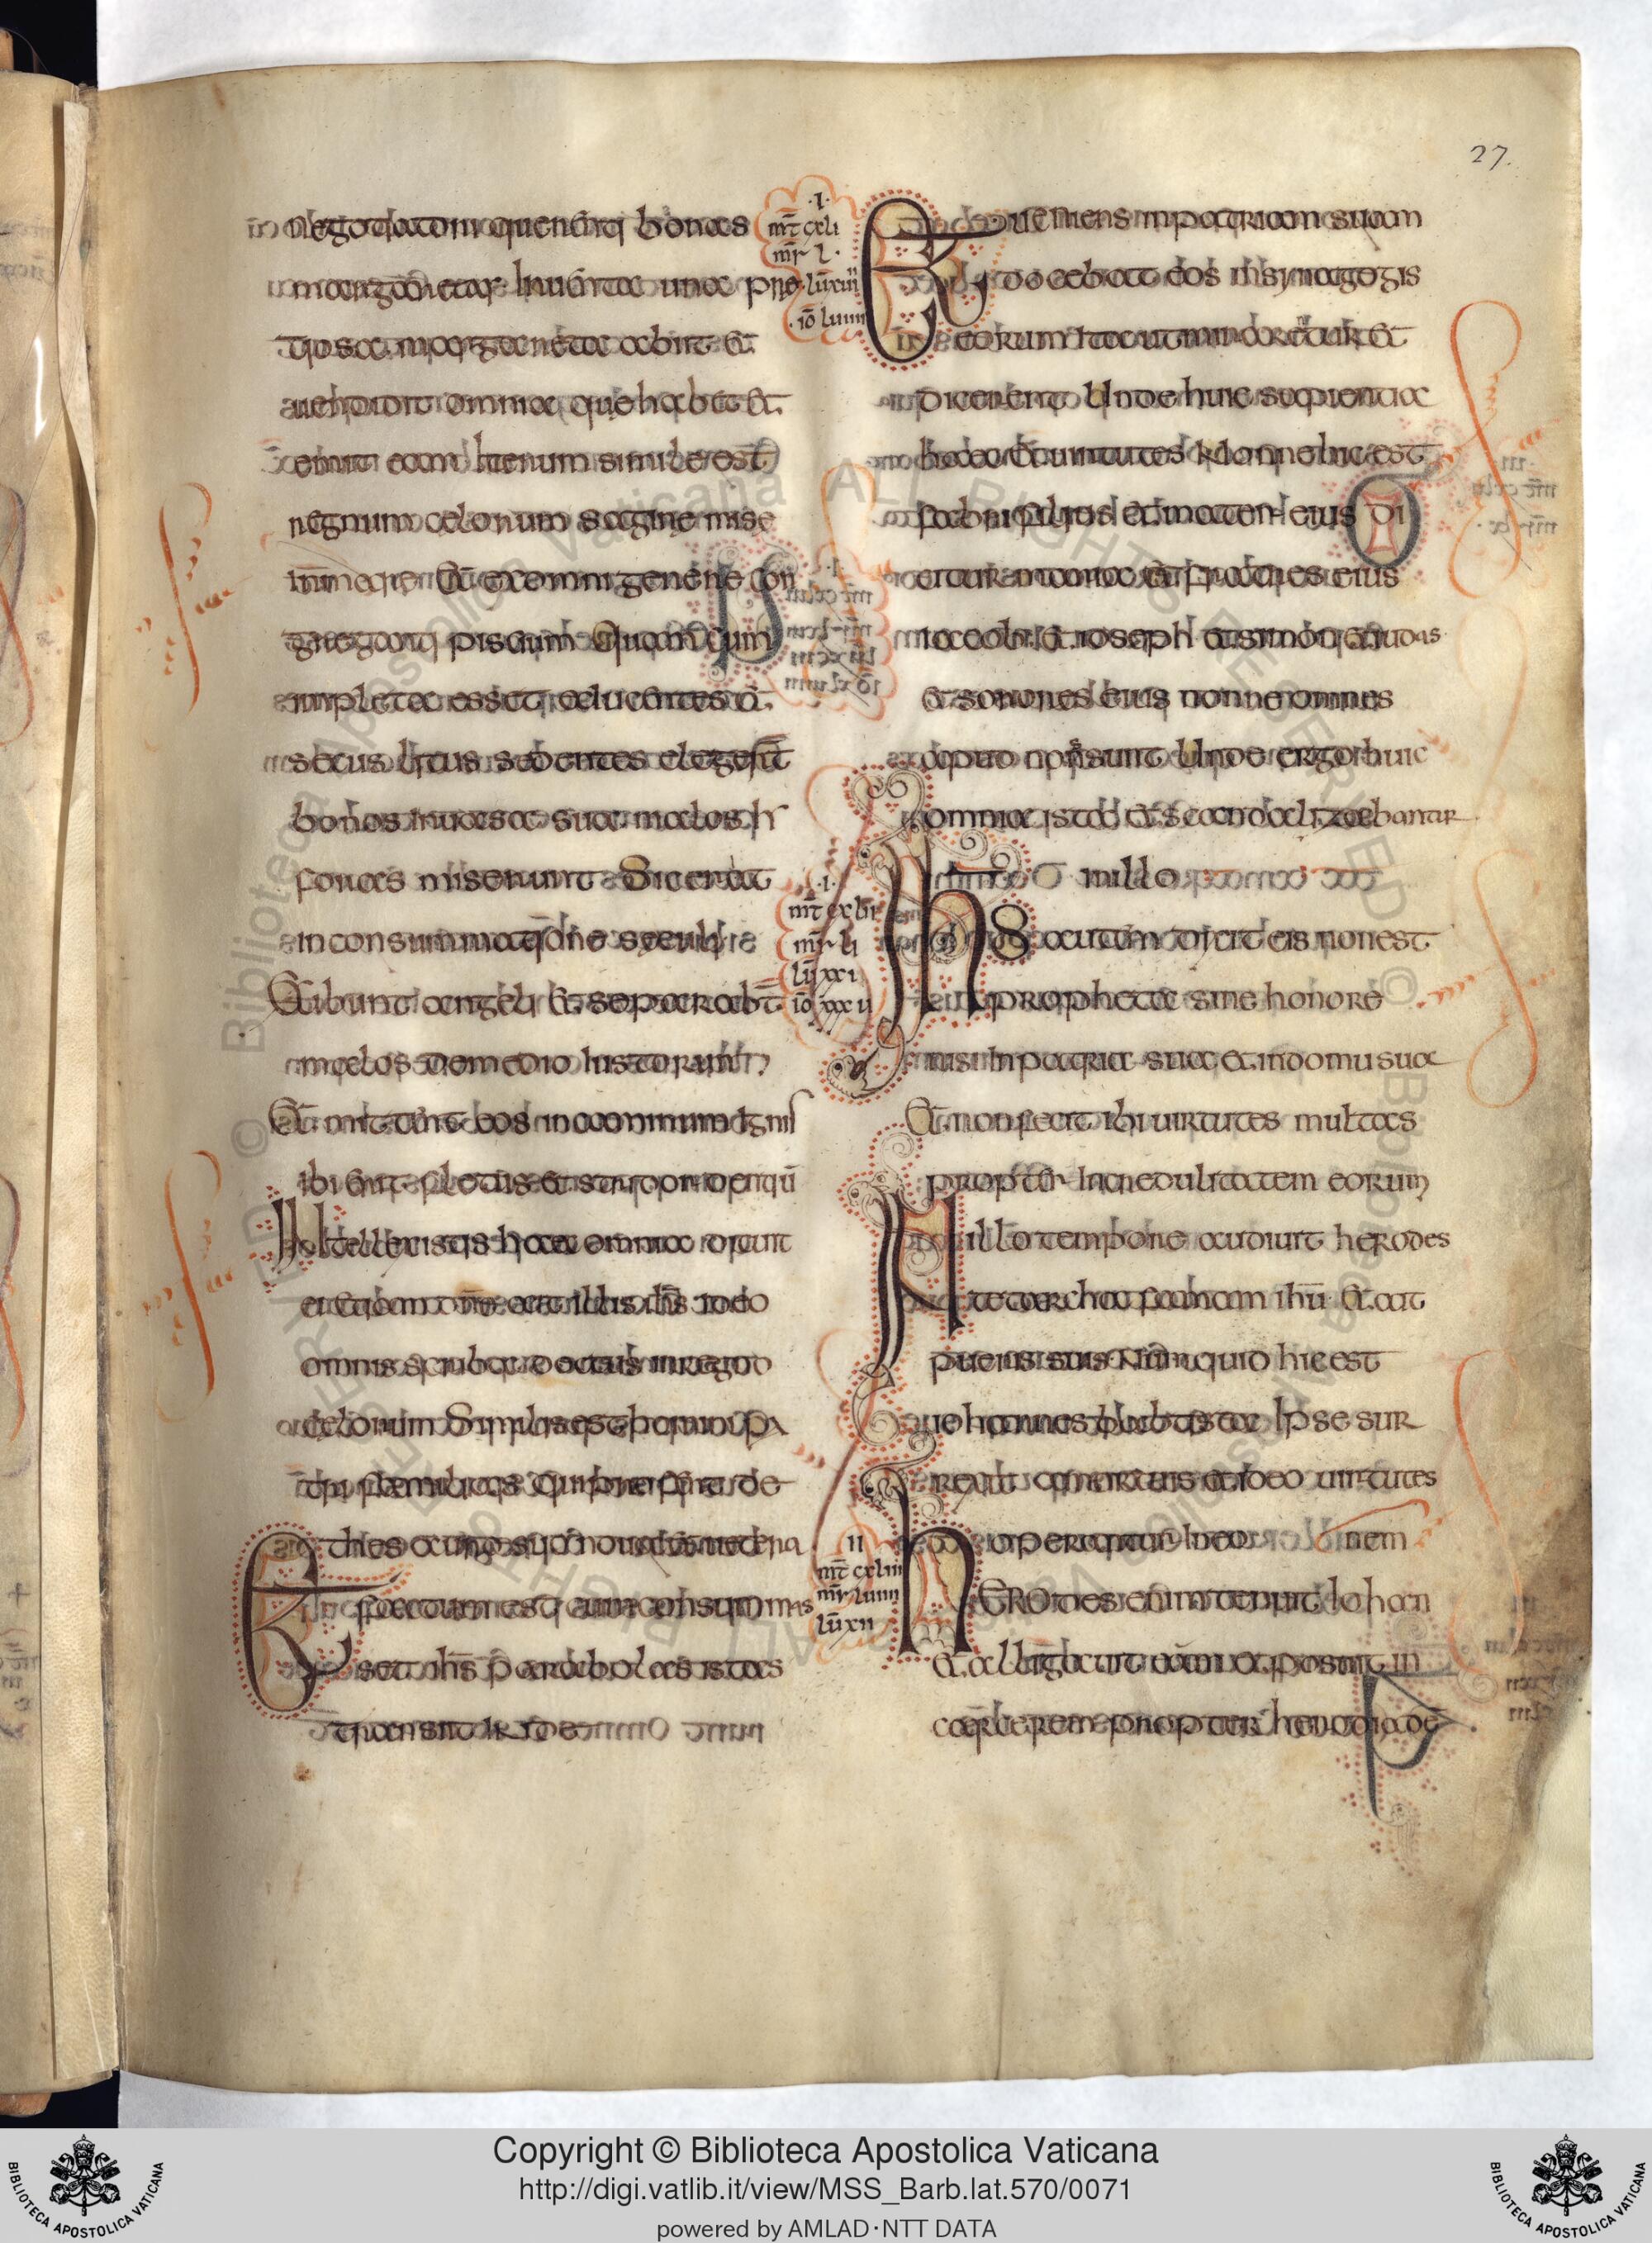 27.
negotiatori querenti bonas
margaritas Inuenta una p̄
tiosa margarita abiit &
uendidit omnia que habuit &
emit eam Iterum simile est
regnum celorum sagine misse
in mare & ex omni genere con
greganti piscium Quam cum
impleta esset educentes &
secus litus sedentes elegerūt
bonos In uasa sua malos h
foras miserunt Sic erit
in consummatione seculi
Exibunt angeli & separabt̄
malos de medio Iustorum
& mittent eos in caminum Ignis
ibi erit fletus & stridor dentiū
Intellexistis haec omnia dicunt
ei etiam ait illis ihs̄ ideo
omnis scriba doctus in regno
celorum Similis est homini pa
tri familias qui profert de
thesauro suo noua & uetera
Et factum est cum consummas
set ihs̄ parabolas istas
transiit Inde
.I.
mt̄ cxli
mr̄ l.
lu xuiiii
iō luiiii
Et ueniens in patriam suam
docebat eos In synagogis
eorum Ita ut mirarentur &
dicerent Unde huic sapientia
haec & uirtutes Nonne hic est
fabri filius et mater eius Di
citur maria & fratres eius
iacob & ioseph & simon & iudas
& sorores eius nonne omnes
apud nos sunt Unde ergo huic
omnia ista & scandalizabantur
in illo
.I.
mt̄ cxlii
mr̄ li
lū xxi
iō xxxu
Ihs autem dicit eis non est
propheta sine honore
nisi In patria sua et in domu sua
&. non fecit ibi uirtutes multas
propter Incredulitatem eorum
In illo tempore audiuit herodes
tetarcha famam ihū &. ait
pueris suis Numquid hic est
iohannes babtista Ipse sur
rexit a mortuis & ideo uirtutes
operantur In eo
nem
II
mt̄ cxliii
mr̄ luiiii
lū xii
hERODes enim tenuit Iohan
&. alligauit eum & posuit in
carcerem propter herodiadē
Copyright © Biblioteca Apostolica Vaticana
http://digi.vatlib.it/view/MSS_Barb.lat.570/0071
powered by AMLAD·NTT DATA
BIBLIOTECA APOSTOLICA VATICANA
BIBLIOTECA APOSTOLICA VATICANA